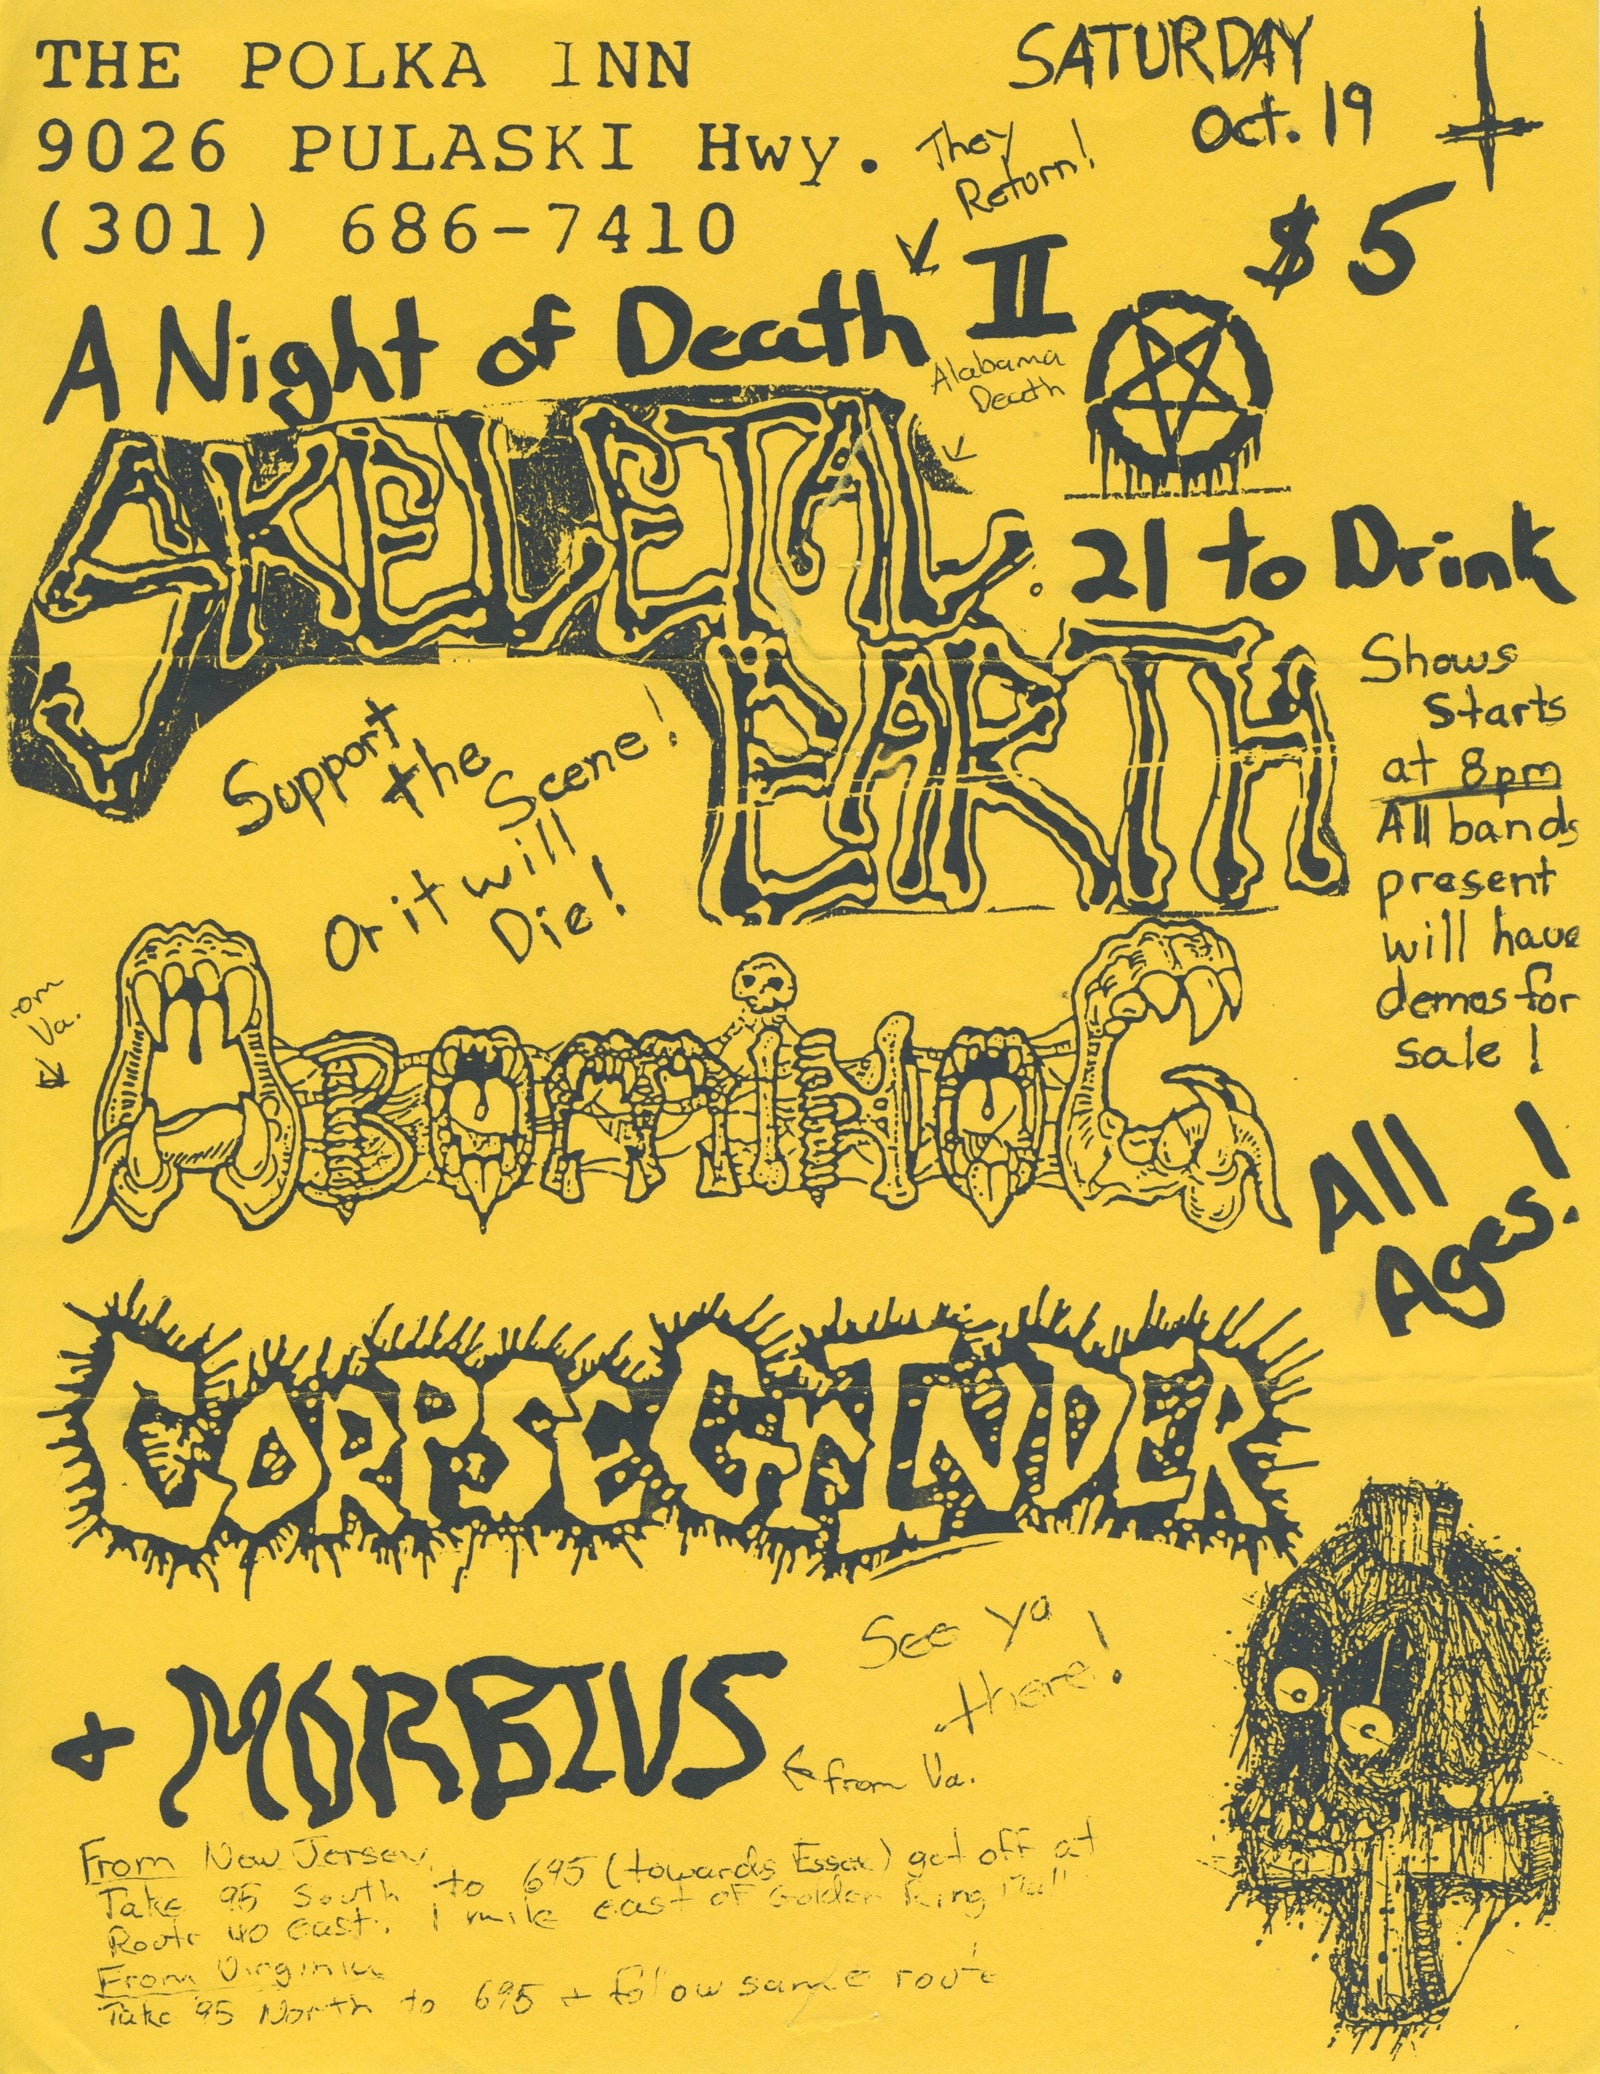 THE POLKA INN
9026 PULASKI Hwy.
(301) 686-7410
SATURDAY
Oct. 19
$5
They
Return!
A Night of Death II
Alabama
Death
SKELETAL
EARTH
21 to Drink
Shows
Starts
at 8pm
All bands
present
will have
demos for
sale!
Support
the
Scene!
Or it will
Die!
om
Va.
ABOMINOG
All
Ages!
CORPSEGRINDER
See ya
there!
+ MORBIUS
from Va.
From New Jersey
Take 95 South to 695 (towards Essex) get off at
Route 40 east. 1 mile east of Golden Ring Mall
From Virginia
Take 95 North to 695 + follow same route